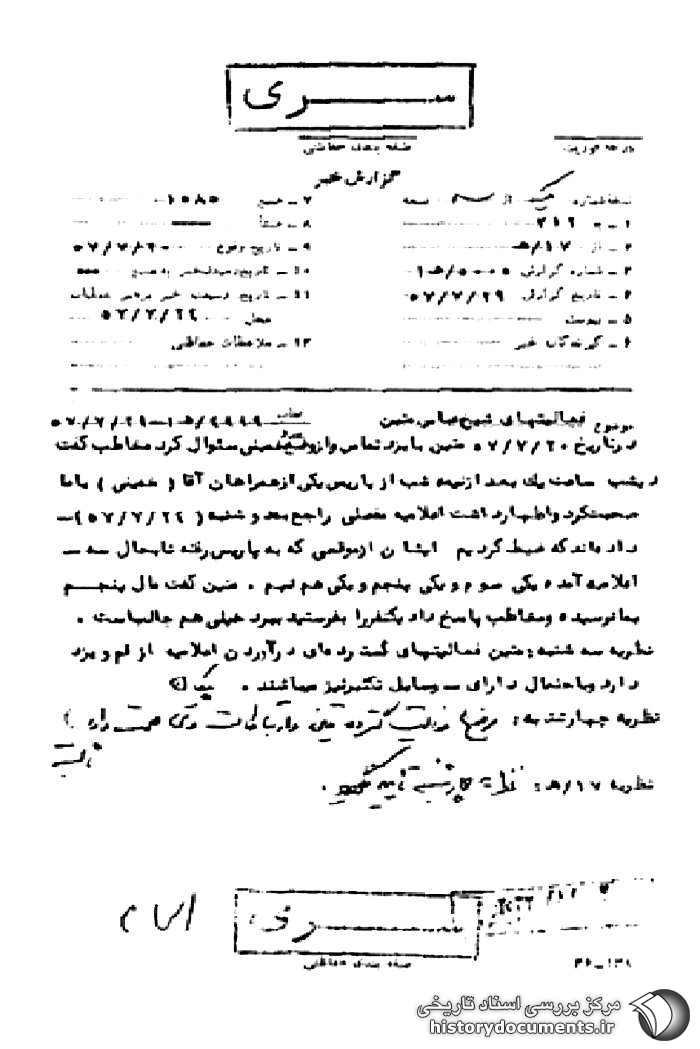 سری
طبقه بندی حفاظتی
درجه فوریت
گزارش خبر
نسخه شماره یک از سه نسخه
۱ ـ به ۳۱۲
۲ ـ از ۱۷/ه
۳ ـ شماره گزارش
۴ ـ تاریخ گزارش ۵۷/۷/۲۹
۵ ـ پیوست
۶ ـ گیرندگان خبر
۷ ـ منبع ۱۰۸۵
۸ ـ منشأ
۹ ـ تاریخ وقوع ۵۷/۷/۲۰
۱۰ ـ تاریخ رسیدن خبر به منبع
۱۱ ـ تاریخ رسیدن خبر به رهبر عملیات
محل ۵۷/۷/۲۴
۱۲ ـ ملاحظات حفاظتی
موضوع فعالیتهای شیخ عباس متین
در تاریخ ۵۷/۷/۲۰ متین با یزد تماس و از وضع خمینی سئوال کرد مخاطب گفت
دیشب ساعت یک بعد از نیمه شب از پاریس یکی از همراهان آقا ( خمینی ) با ما
صحبت کرد و اظهار داشت اعلامیه مفصلی راجع بدوشنبه ( ۵۷/۷/۲۴ ) ـ
داده اند که ضبط کردیم ایشان از موقعی که به پاریس رفته تابحال سه ـ
اعلامیه آمده یکی سوم و یکی پنجم و یکی هم نهم . متین گفت مال پنجم
بما نرسیده و مخاطب پاسخ داد یکنفر را بفرستید ببرد خیلی هم جالب است .
نظریه سه شنبه : متین فعالیتهای گسترده ای در آوردن اعلامیه از قم و یزد
دارد و باحتمال دارای ـ وسایل تکثیر نیز میباشند .
نظریه چهارشنبه :
نظریه ۱۷/ه : نظریه چهارشنبه تأیید میگردد .
سری
طبقه بندی حفاظتی
مرکز بررسی اسناد تاریخی
historydocuments.ir